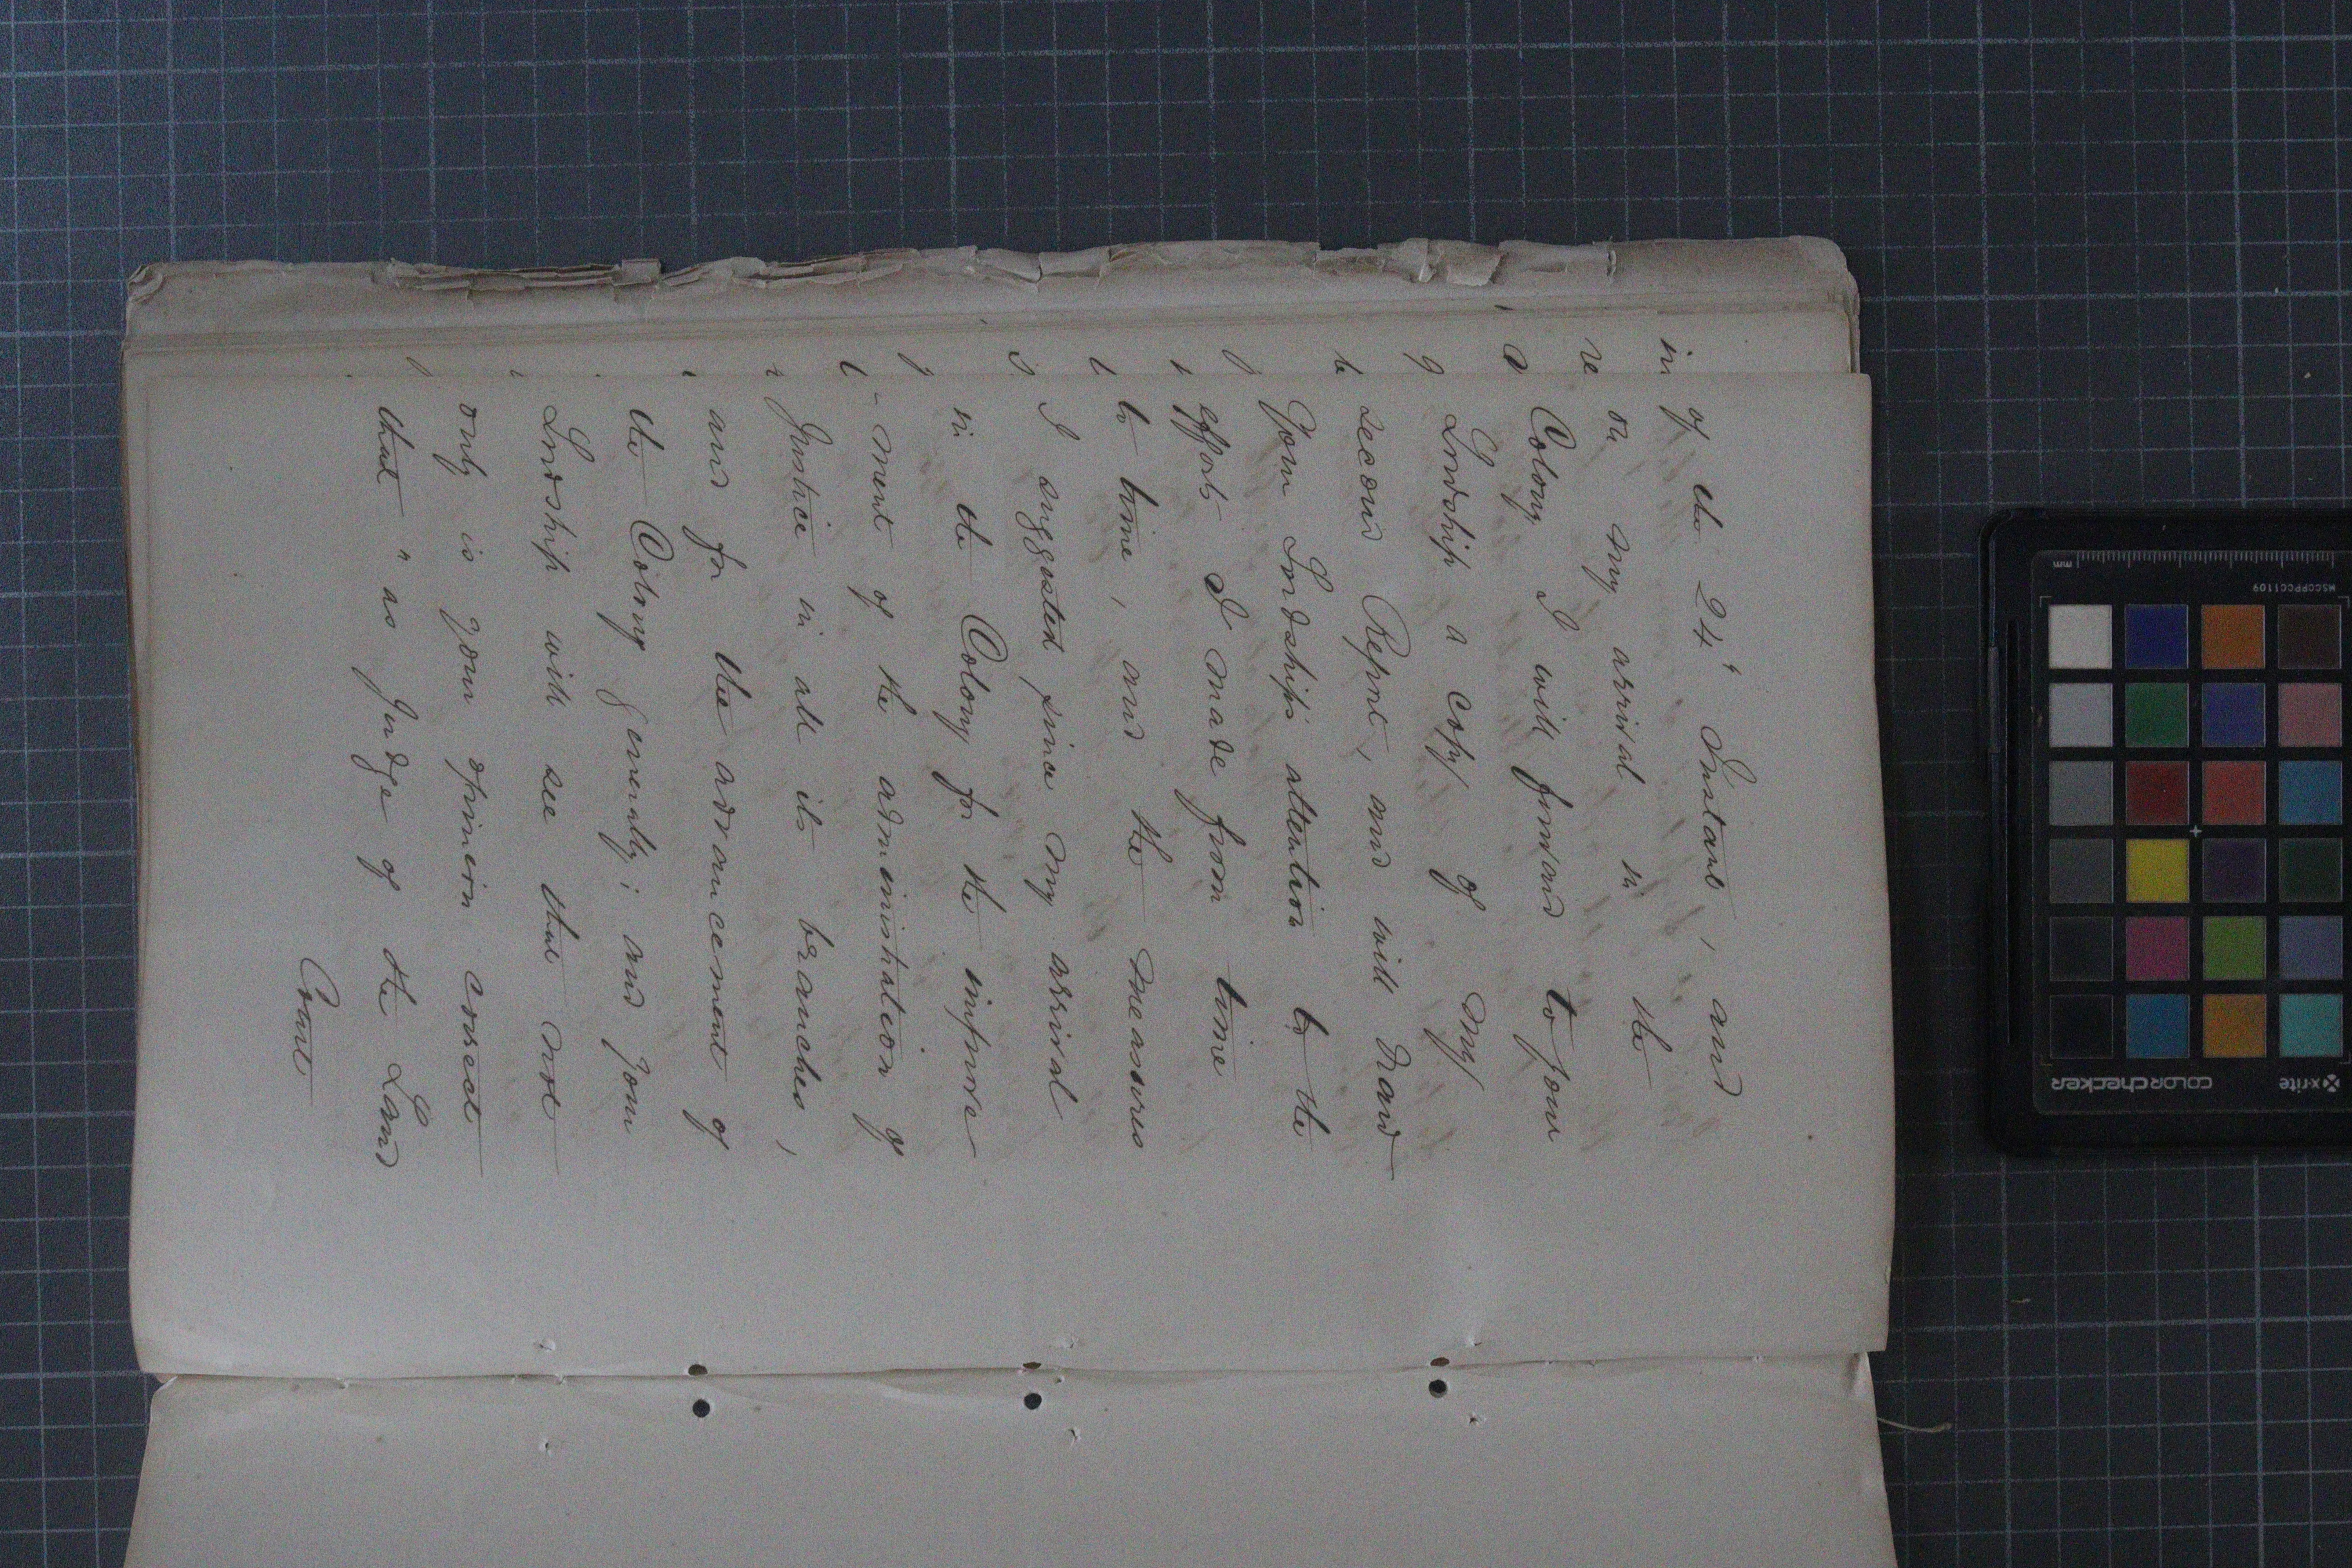 of the 24th Instant, and
on my arrival in the
Colony I will forward to your
Lordship a copy of my
second Report, and will draw
Your Lordship's attention to the
efforts I made from time
to time, and the measures
I suggested since my arrival
in the Colony for the improve
-ment of the administration of
Justice in all its branches,
and for the advancement of
the Colony generally; and your
Lordship will see that not
only is your opinion correct
that "as Judge of the Land
Court
in
re
mm
MSCCPPCC1109
x-rite
colorchecker